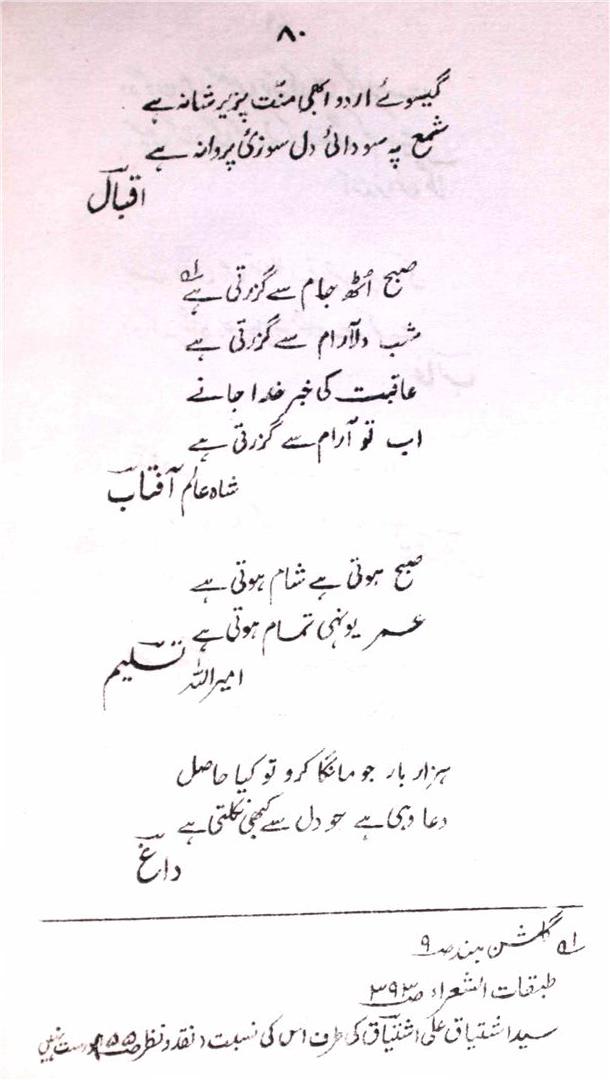 ۸۰
گیسوئے اردو ابھی منّت پذیرِ شانہ ہے
شمع یہ سودائیٔ دل سوزیٔ پروانہ ہے
اقبال
صبح اُٹھ جام سے گزرتی ہے ؎۱
شب دلآرام سے گزرتی ہے
عاقبت کی خبر خدا جانے
اب تو آرام سے گزرتی ہے
شاہ عالم آفتاب
صبح ہوتی ہے شام ہوتی ہے
عمر یونہی تمام ہوتی ہے
امیراللہ تسلیم
ہزار بار جو مانگا کرو تو کیا حاصل
دعا وہی ہے جو دل سے کبھی نکلتی ہے
داغ
؎۱ گلشن ہند صـ ۹
طبقات الشعراء صـ ۳۹۳
سید اشتیاق علی اشتیاق کی طرف اس کی نسبت (نقد و نظر صـ ۱۵۵) درست نہیں